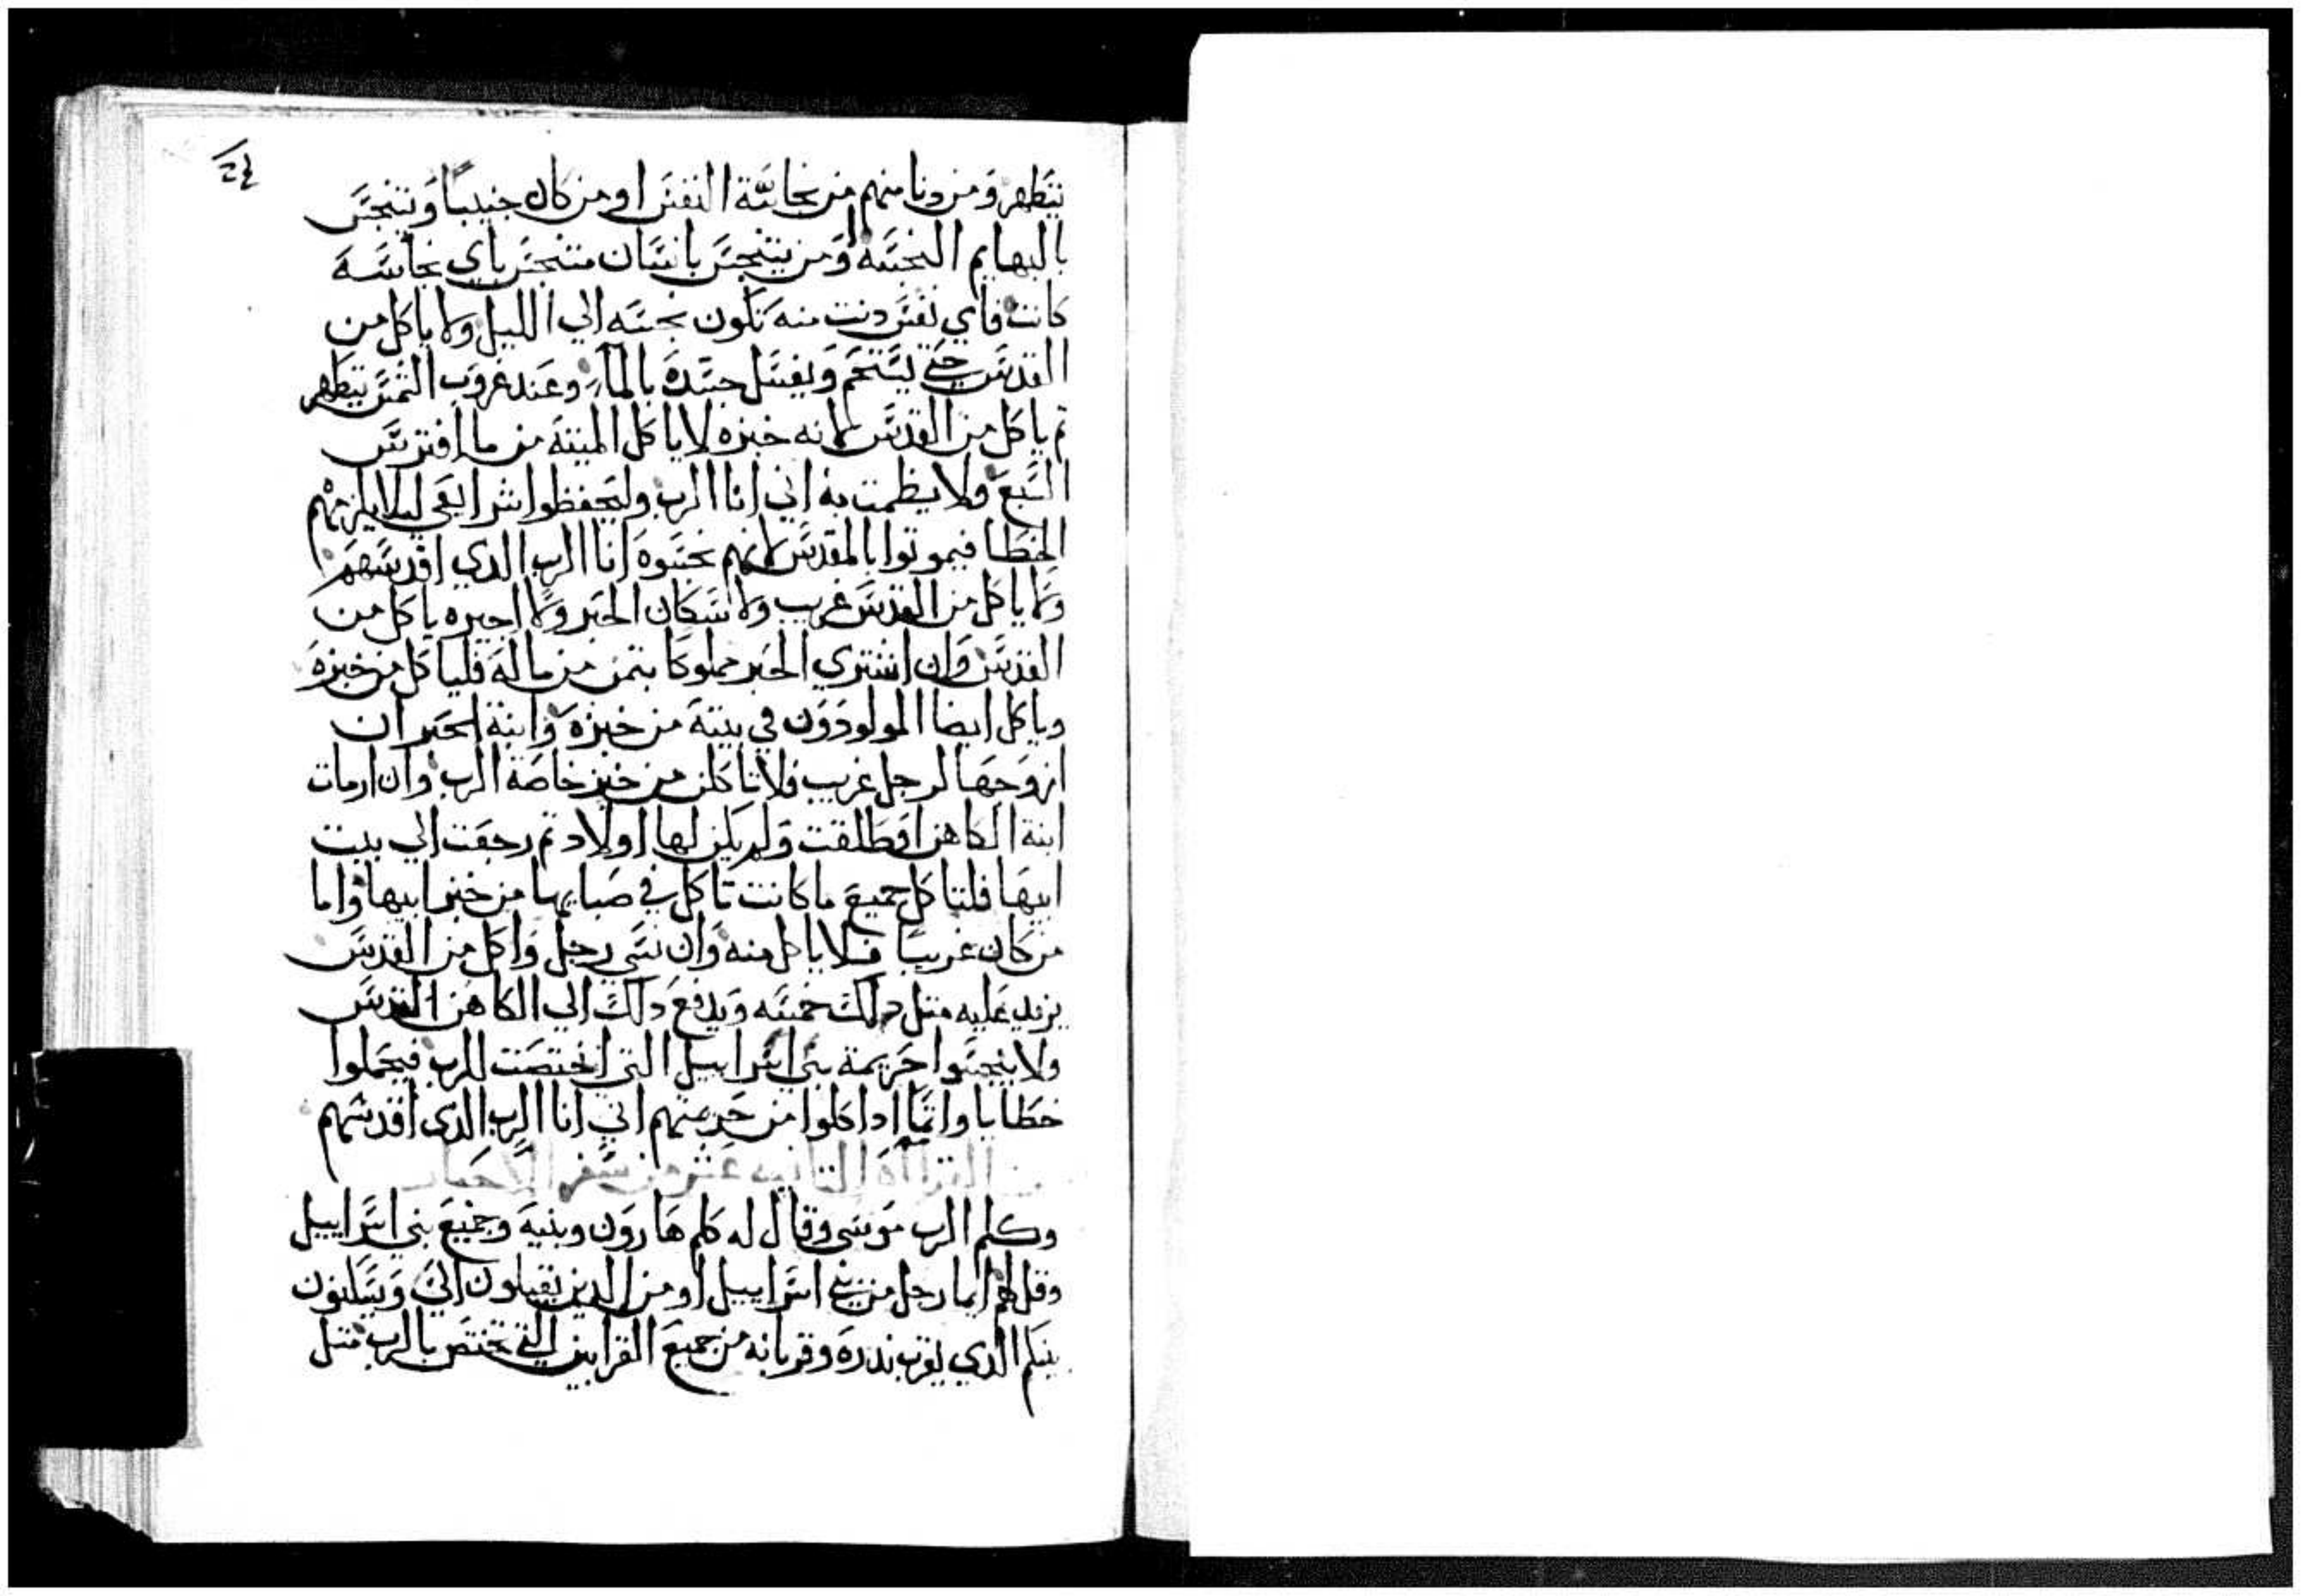 يتطهر ومن دنا منهم من نجاسة النفس او من كان جنيباً ويتنجس
بالبهايم النجسه ومن يتنجس بانسان متنجس باي نجاسه
كانت فاي نفس دنت منه تكون نجسه الي الليل ولا ياكل من
القدس حتي يستحم ويغسل جسده بالمآ وعند غروب الشمس يتطهر
تم ياكل من القدس لانه خبزه لا ياكل الميتة من ما افترس
السبع ولا يطمت به اني انا الرب وليحفظوا شرايعي ليلا يلزمهم
الخطا فيموتوا بالمقدس لانهم نجسوه انا الرب الدي اقدسهم
ولا ياكل من القدس غريب ولا سكان الحبر ولا اجيره ياكل من
القدس وان اشتري الحبر مملوكا بتمن من ماله فلياكل من خبزه
وياكل ايضا المولودون في بيته من خبزه وابنة الحبر ان
ازوجها لرجل غريب فلا تاكلن من خبز خاصة الرب وان ارمات
ابنة الكاهن او طلقت ولم يكن لها اولاد تم رجعت الي بيت
ابيها فلتاكل جميع ما كانت تاكل في صبايها من خبز ابيها واما
من كان غريباً فلا ياكل منه وان نسي رجل واكل من القدس
يزيد عليه متل دلك خمسه ويدفع دلك الي الكاهن القدس
ولا ينجسوا حريمة بني اسراييل التي اختصت للرب فيحملوا
خطايا واتما ادا اكلوا من حريمتهم اني انا الرب الدي اقدسهم
القراآه التانيه عشر من سفر الاحبار
وكلم الرب موسي وقال له كلم هارون وبنيه وجميع بني اسراييل
وقل لهم ايما رجل من بني اسراييل او من الدين يقبلون الي ويسكنون
بينكم الدي يقرب ندره وقربانه من جميع القرابين التي تختص بالرب متل